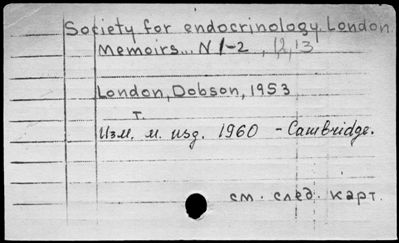 Society for endocrinology London.
Memoirs... N 1-2, 12, 13
London, Dobson, 1953
т.
Изм. м. изд. 1960 - Cambridge.
см. след. карт.